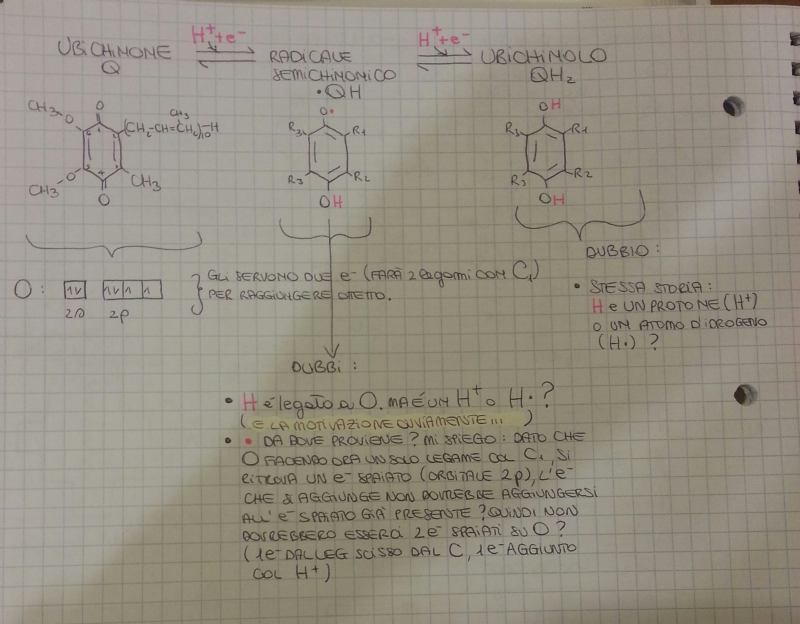 H⁺+e⁻
H⁺+e⁻
UBICHINONE
Q
RADICALE
SEMICHINONICO
•QH
UBICHINOLO
QH₂
CH₃
O
O
(CH₂-CH=CCH₂)₁₀-H
CH₃
O
CH₃
CH₃
O
O•
R₃
R1
R₃
R₂
OH
OH
R₃
R1
R₃
R₂
OH
O:
2s
2p
GLI SERVONO DUE e⁻ (FARÀ 2 legami CON C₁)
PER RAGGIUNGERE OTTETTO.
DUBBIO:
• STESSA STORIA:
H e UN PROTONE (H⁺)
O UN ATOMO D'IDROGENO
(H•)?
DUBBI:
• H é legato a O. MA É UN H⁺ O H•?
(E LA MOTIVAZIONE OVVIAMENTE...)
• • DA DOVE PROVIENE? MI SPIEGO: DATO CHE
O FACENDO ORA UN SOLO LEGAME COL C₁, SI
RITROVA UN e⁻ SPAIATO (ORBITALE 2p), L'e⁻
CHE SI AGGIUNGE NON DOVREBBE AGGIUNGERSI
ALL'e⁻ SPAIATO GIÀ PRESENTE? QUINDI NON
DOVREBBERO ESSERCI 2e⁻ SPAIATI SU O?
(1e⁻ DAL LEG SCISSO DAL C, 1e⁻ AGGIUNTO
COL H⁺)